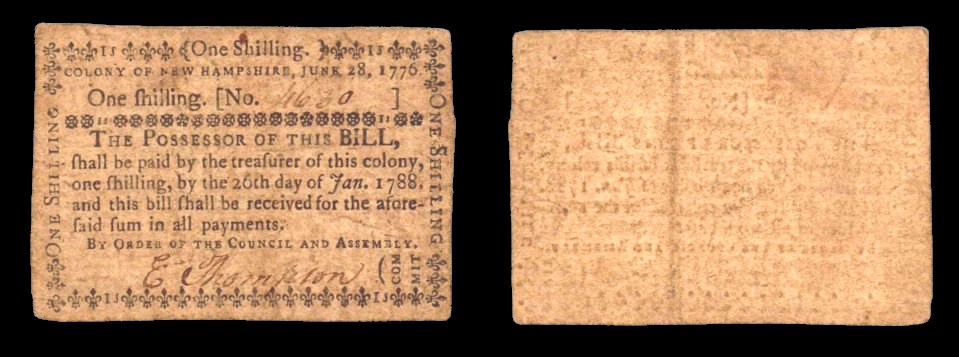 1s {One Shilling.} 1s
COLONY OF NEW HAMPSHIRE, JUNE 28, 1776.
One ſhilling. [No. 4630 ]
THE POSSESSOR OF THIS BILL,
ſhall be paid by the treaſurer of this colony,
one ſhilling, by the 26th day of Jan. 1788,
and this bill ſhall be received for the afore-
ſaid ſum in all payments.
BY ORDER OF THE COUNCIL AND ASSEMBLY.
E Thompson ( COM
MIT
1s 1s
ONE SHILLING
ONE SHILLING